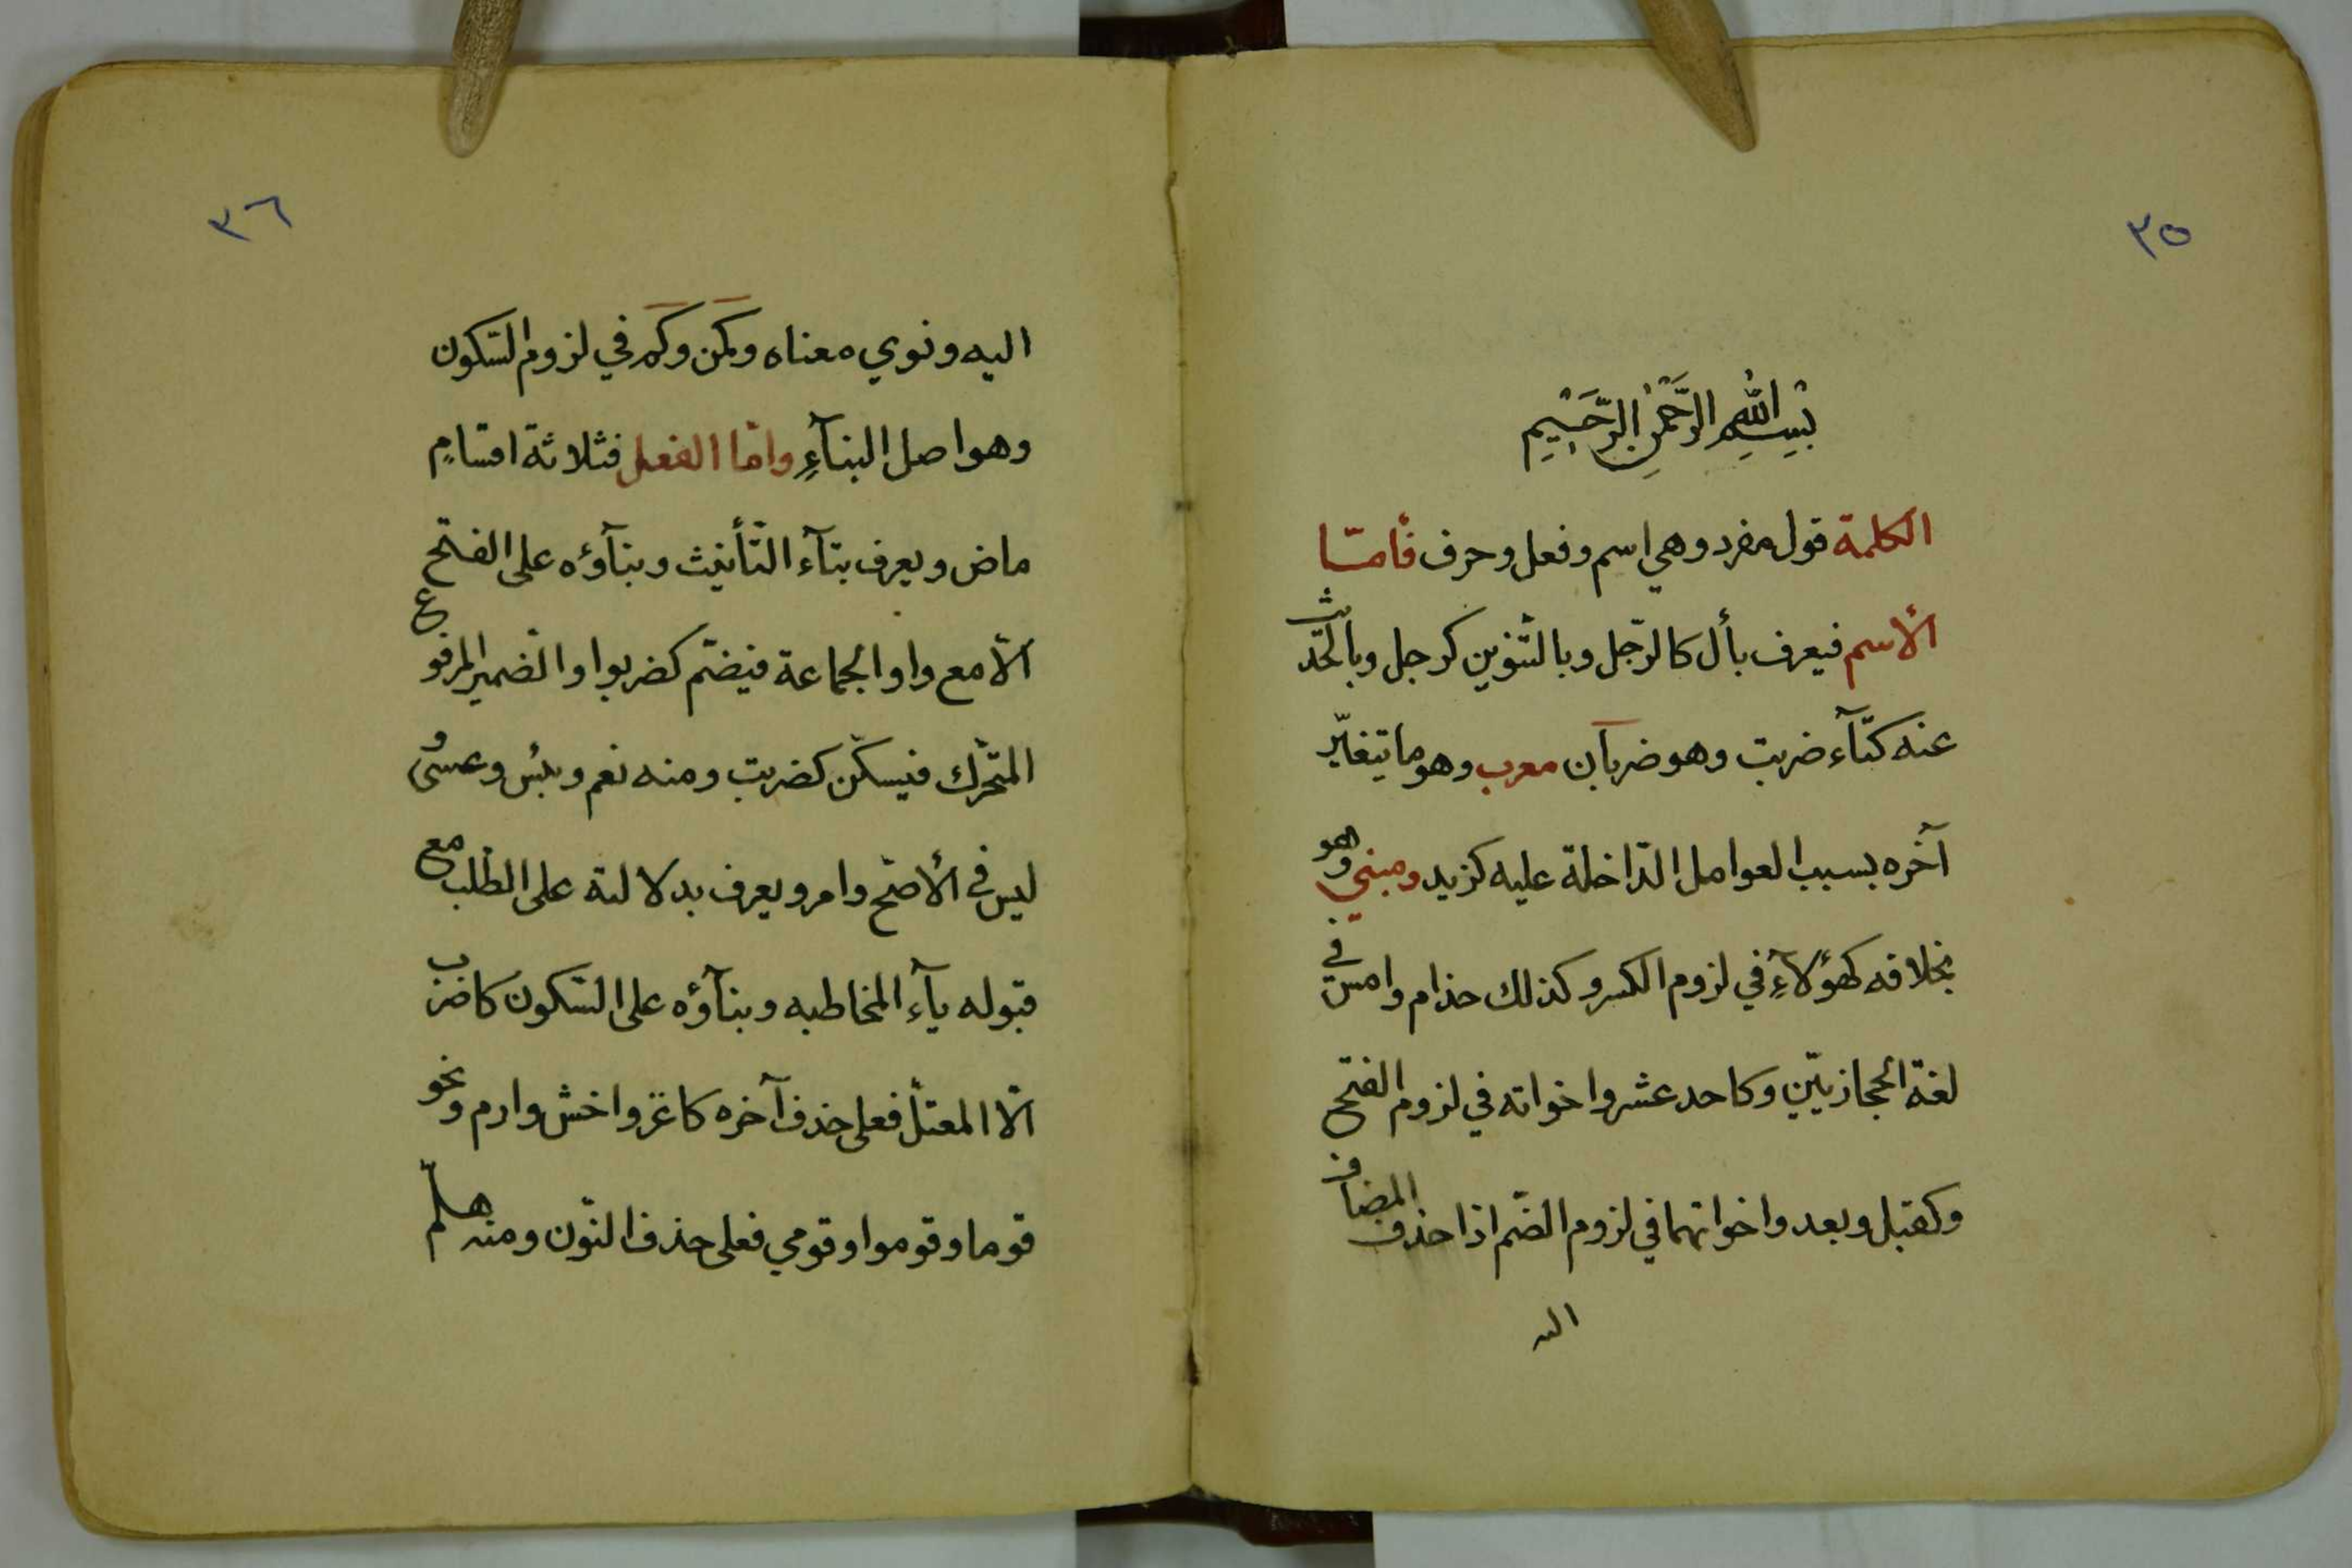 ٣٥
بسم الله الرحمن الرحيم
الكلمة قول مفرد وهي اسم وفعل وحرف فأمّا
الأسم فيعرف بأل كالرّجل وبالتّنوين كرجل وبالحّديث
عنه كتآء ضربت وهو ضربان معرب وهو ما يتغيّر
آخره بسبب العوامل الدّاخلة عليه كزيد ومبني وهو
بخلافه كهؤلآءِ في لزوم الكسر وكذلك حذام وامس في
لغة الحجازيّين وكاحد عشر واخواته في لزوم الفتح
وكقبل وبعد واخواتهما في لزوم الضّم اذا حذف المضاف
اليه
٣٦
اليه ونوي معناه وكمن وكم في لزوم السّكون
وهو اصل البنآءِ وامّا الفعل فثلاثة اقسامٍ
ماض ويعرف بتآء التّأنيث وبنآؤه على الفتح
الّا مع واو الجماعة فيضمّ كضربوا والضمير المرفوع
المتحّرك فيسكّن كضربت ومنه نعم وبئس وعسى و
ليس في الأصّح وامر ويعرف بدلالته على الطّلب مع
قبوله يآء المخاطبه وبنآؤه على السّكون كاضرب
الّا المعتلّ فعلى حذف آخره كاغز واخش وارم ونحو
قوما وقوموا وقومي فعلى حذف النّون ومنه هلمّ